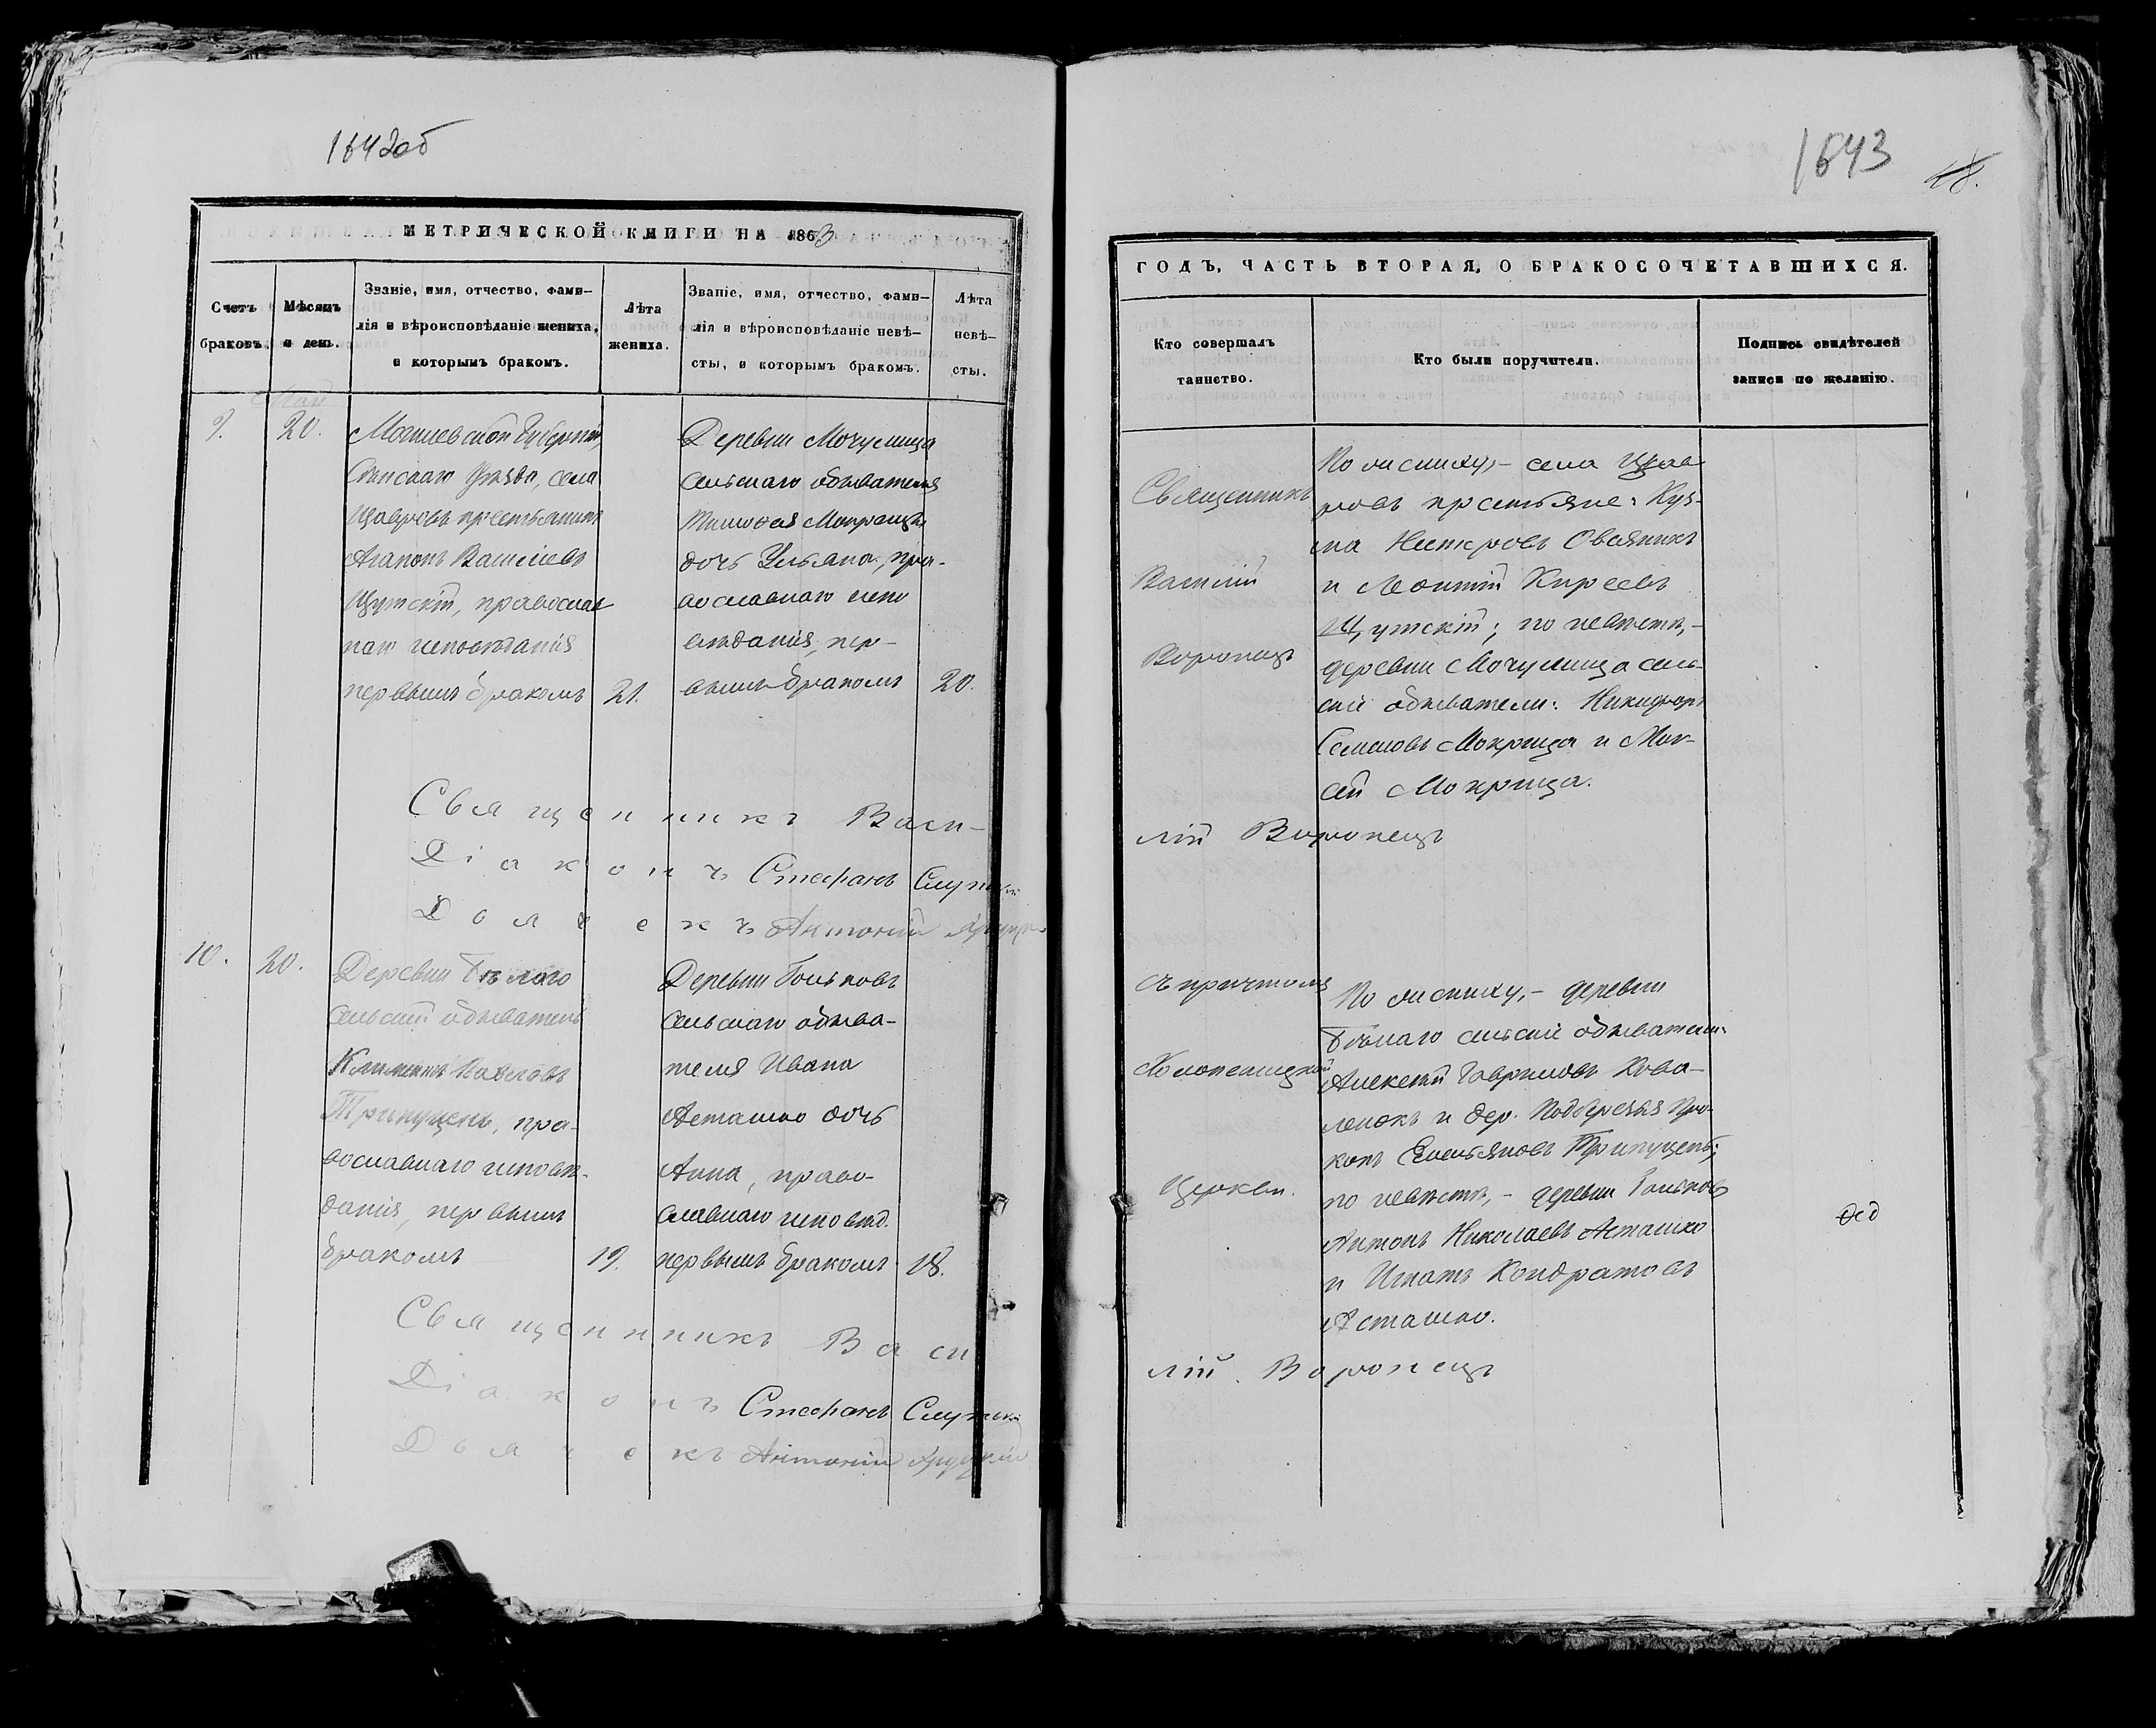 1642об
МЕТРИЧЕСКОЙ КНИГИ НА 1863
Счетъ
браковъ.
Мѣсяцъ
и день.
Званіе, имя, отчество, фами-
лія и вѣроисповѣданіе жениха,
и которымъ бракомъ.
Лѣта
жениха.
Званіе, имя, отчество, фами-
лія и вѣроисповѣданіе невѣ-
сты, и которымъ бракомъ.
Лѣта
невѣ-
сты.
Май
9.
20.
Могилевской Губерніи,
уѣзда, села
крестьянинъ
Агапонъ Васильевъ
Щутскій, православ
наго исповѣданія
первымъ бракомъ
21.
Деревни Мочулища
сельскаго обывателя
Мокрицы
дочь Ульяна, пра-
вославнаго испо
вѣданія, пер-
вымъ бракомъ
20.
Священникъ Васи-
Діаконъ Стефанъ
Дьячекъ Антоній
10.
20.
Деревни Бѣлаго
сельскій обыватель
Климентъ Павловъ
Трипуцень, пра-
вославнаго исповѣ-
данія, первымъ
бракомъ
19.
Деревни Гольковъ
сельскаго обыва-
теля Ивана
Асташко дочь
Анна, право-
славнаго исповѣд.
первымъ бракомъ
18.
Священникъ Васи
Діаконъ Стефанъ
Дьячекъ Антоній Хруцкій
1643
18.
ГОДЪ, ЧАСТЬ ВТОРАЯ, О БРАКОСОЧЕТАВШИХСЯ.
Кто совершалъ
таинство.
Кто были поручители.
Подпись свидѣтелей
записи по желанію.
Священникъ
Василій
Воронецъ
По жениху,- села
крестьяне: Кузь-
ма Овсяникъ
и Леонтій Кирѣевъ
Щутскій; по невѣстѣ,-
деревни Мочулища сель-
скіе обыватели: Никифоръ
Семеновъ Мокрица и Мои-
сей Мокрица.
лій Воронецъ
съ причтомъ
церкви.
По жениху,- деревни
Бѣлаго сельскіе обыватели:
Алексѣй Гавриловъ Кова-
ленокъ и дер. Подберезья Про-
копъ Емельяновъ Трипуцень;
по невѣстѣ,- деревни Гольковъ
Антонъ Николаевъ Асташко
и Игнатъ Кондратовъ
Асташко.
лій Воронецъ